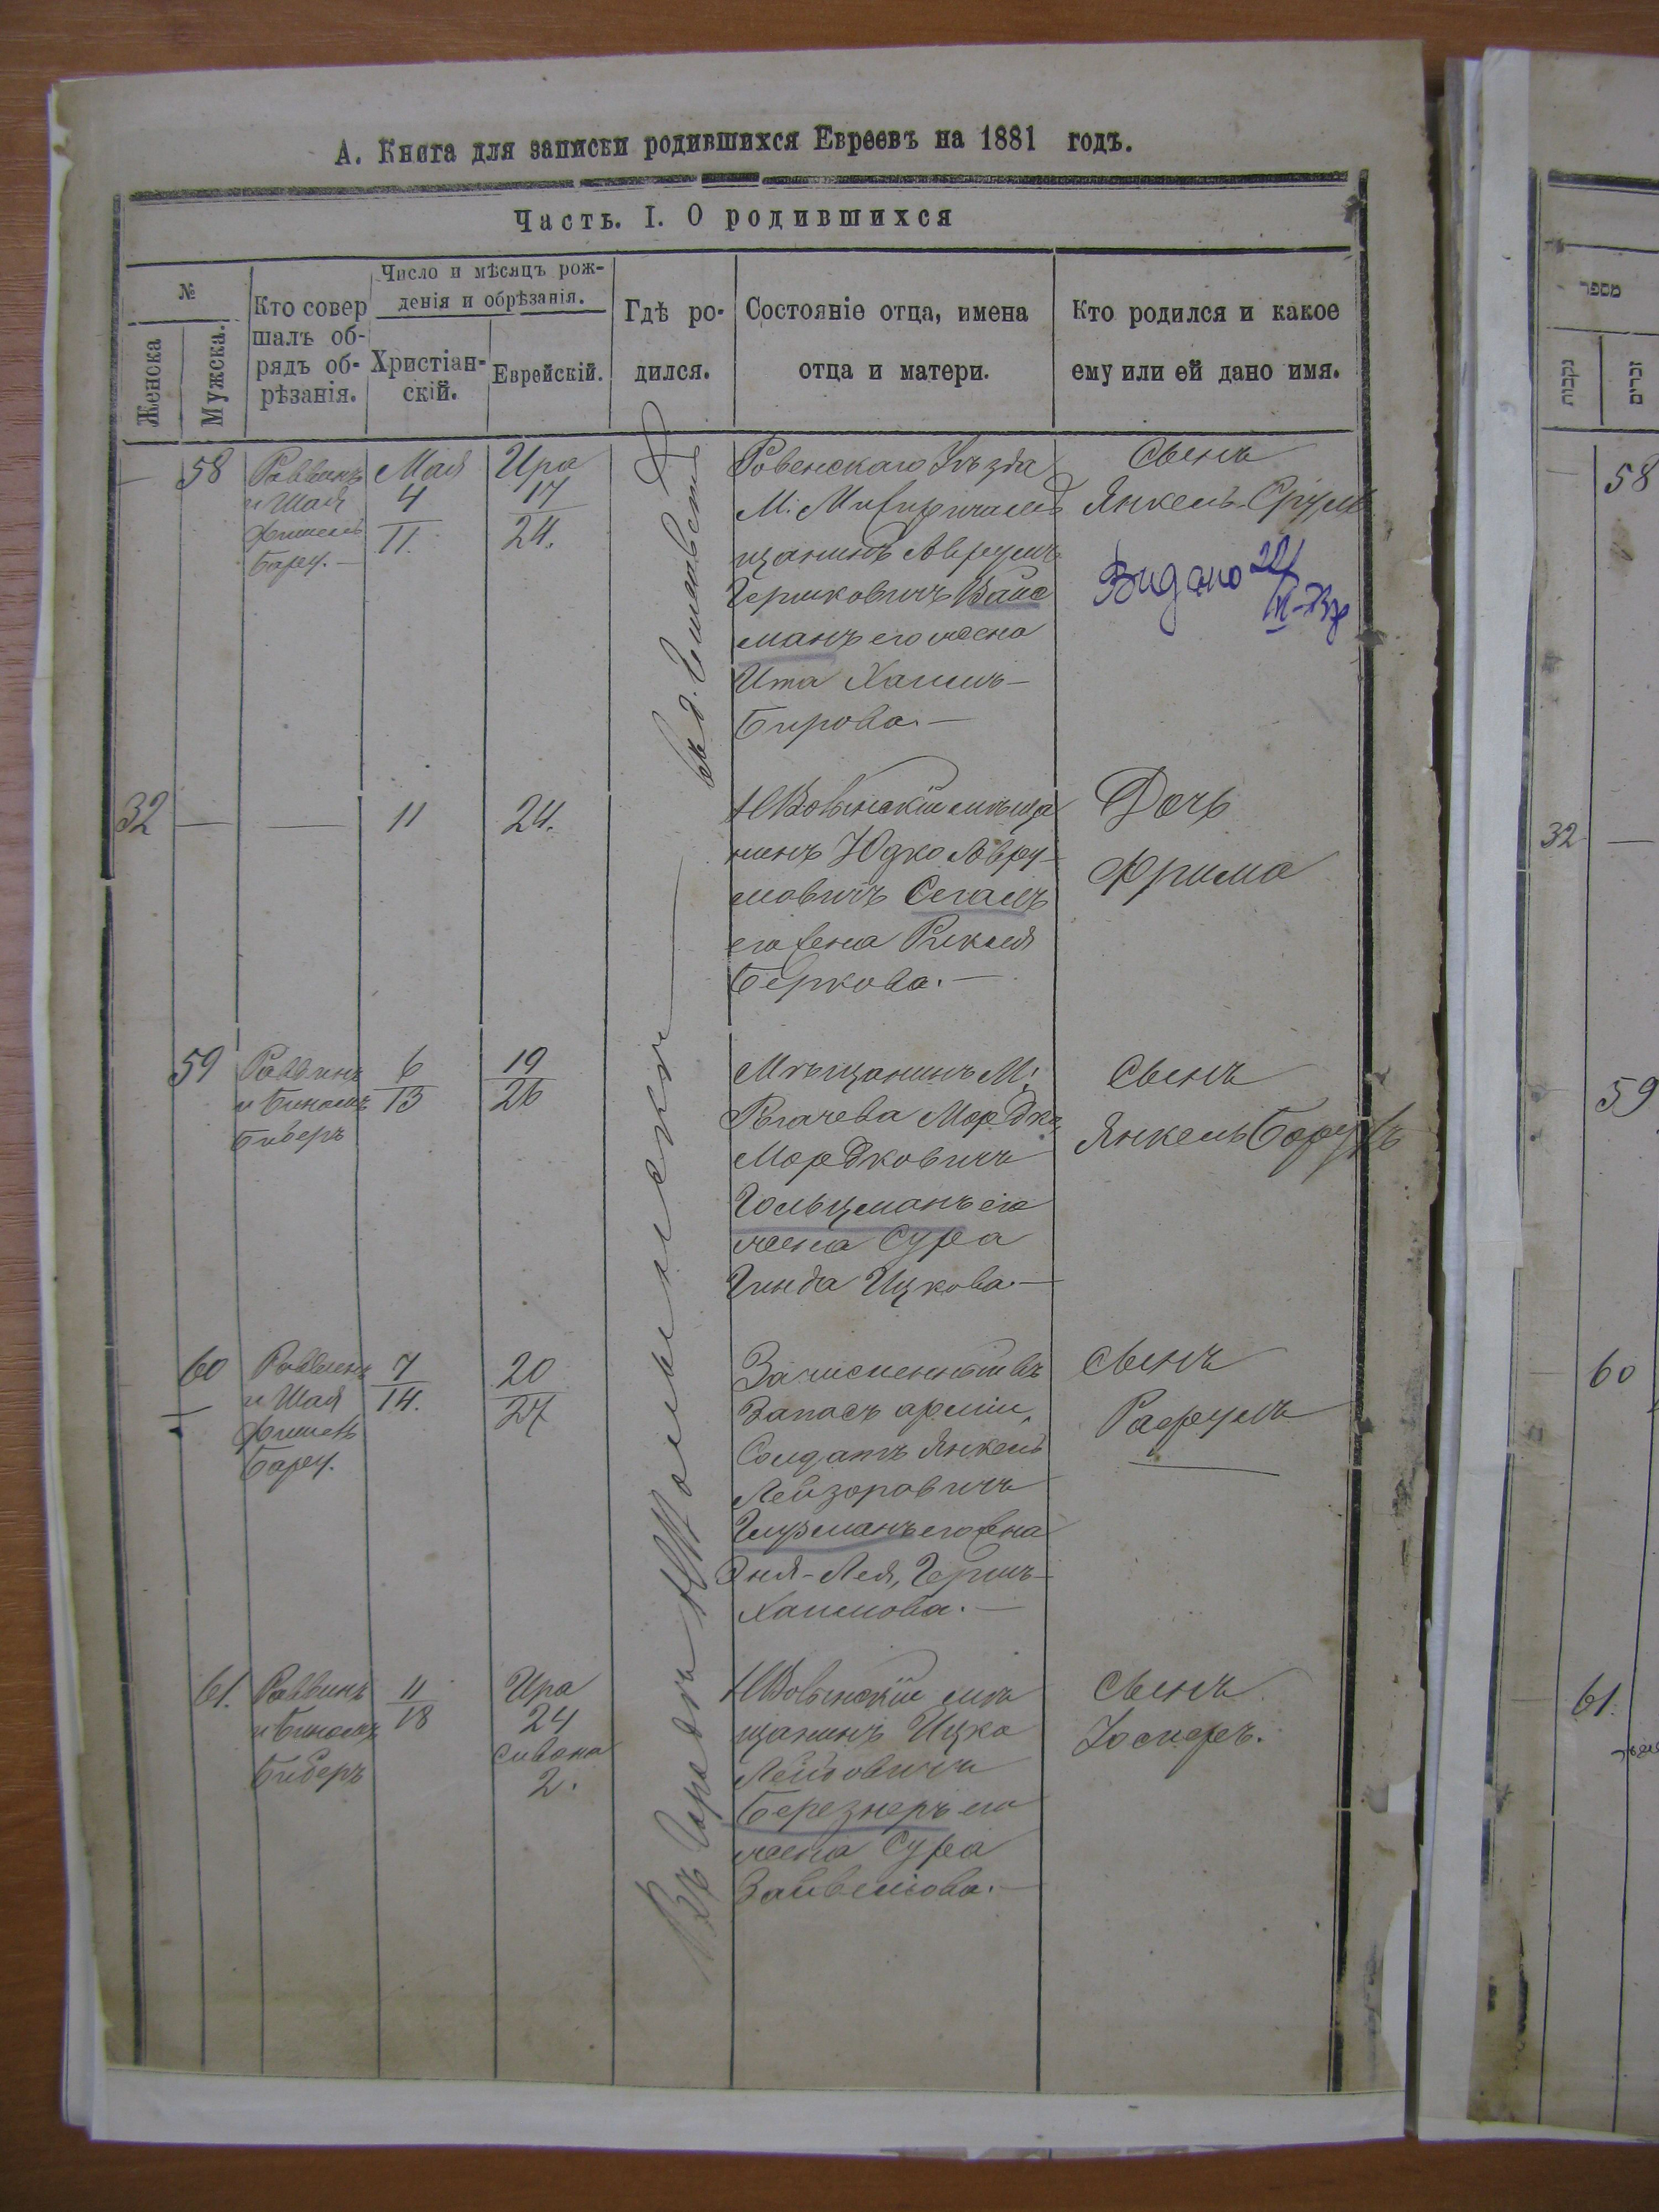 А. Книга для записки родившихся Евреевъ на 1881 годъ.
Часть. I. О родившихся
№
Женска
Мужска.
Кто совер
шалъ об-
рядъ об-
рѣзанія.
Число и мѣсяцъ рож-
денія и обрѣзанія.
Христіан-
скій.
Еврейскій.
Гдѣ ро-
дился.
Состояніе отца, имена
отца и матери.
Кто родился и какое
ему или ей дано имя.
Въ Городѣ
58
Раввинъ
и Шая
Фишель
Барец.
Мая
4
11.
Ира
17
24.
Ровенскаго Уѣзда
М. мѣ
щанинъ Аврумъ
Гершковичъ Вайс
манъ его жена
Ита Хаимъ-
Берова.
Сынъ
Янкель-Сруль
Видано
32
—
—
11
24.
НВолынскій мѣща
нинъ Юдко Авру-
мовичъ Сегалъ
его жена Рикля
Беркова.
Дочь
Фрима
59
Раввинъ
и Биномъ
Биберъ
6
13
19
26
Мѣщанинъ М.
Рогачева Мордко
Мордковичъ
Гольцманъ его
жена Сура
Гинда Ицкова.
Сынъ
Янкель Борухъ
60
Раввинъ
и Шая
Фишель
Барец.
7
14.
20
27
Зачисленный въ
Запасъ арміи,
Солдатъ Янкель
Лейзоровичъ
его жена
Эня-Лея, Гершъ-
Хаимова.
Сынъ
Рафулъ
61.
Раввинъ
и Биномъ
Биберъ
11
18
Ира
24
Сивона
2.
НВолынскій мѣ
щанинъ Ицко
Лейбовичъ
Березнеръ его
жена Сура
Зайвелова.
Сынъ
Іосифъ.
מספר
נקבות
זכרים
58
32
—
59
60
61.